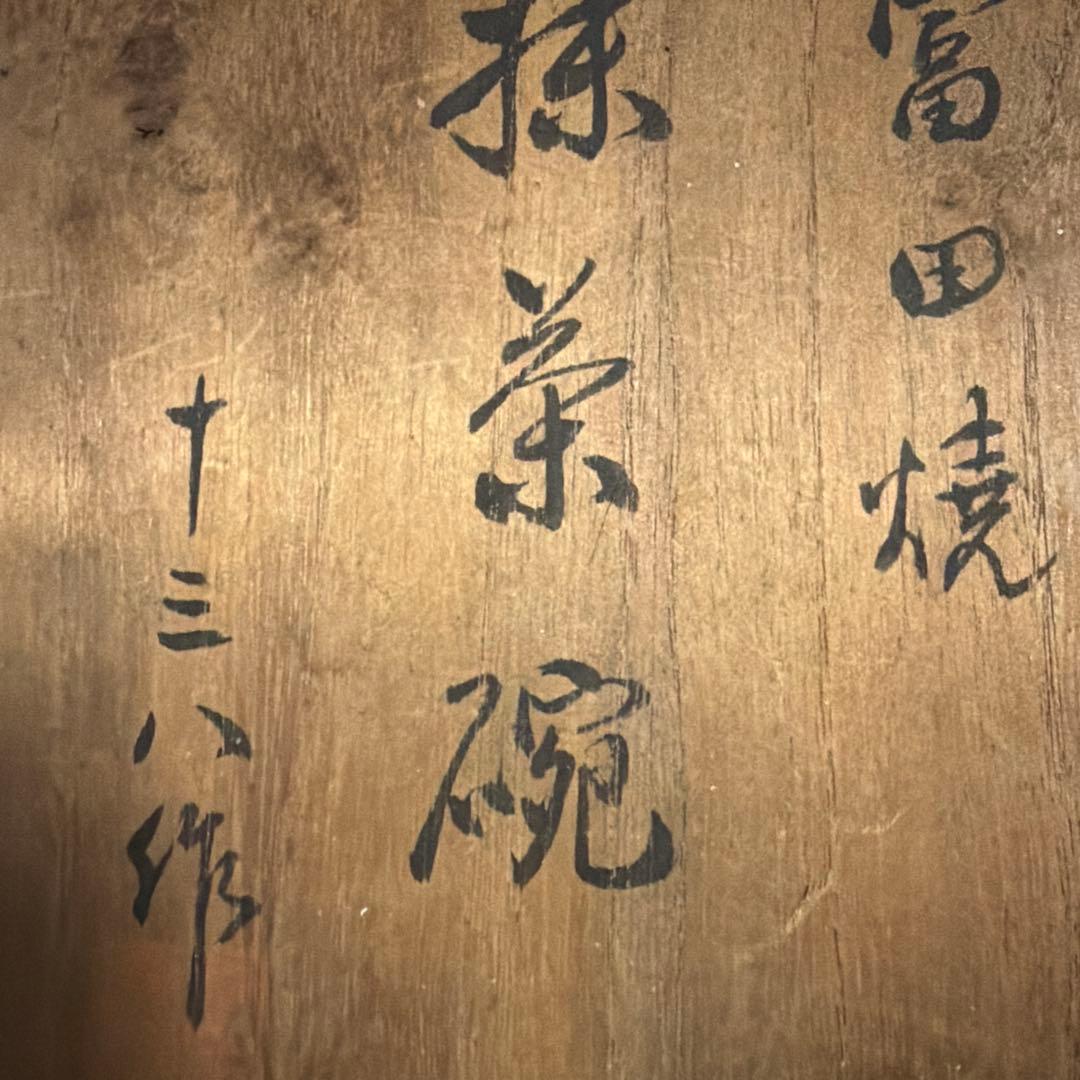 富田焼
抹茶碗
十三八作